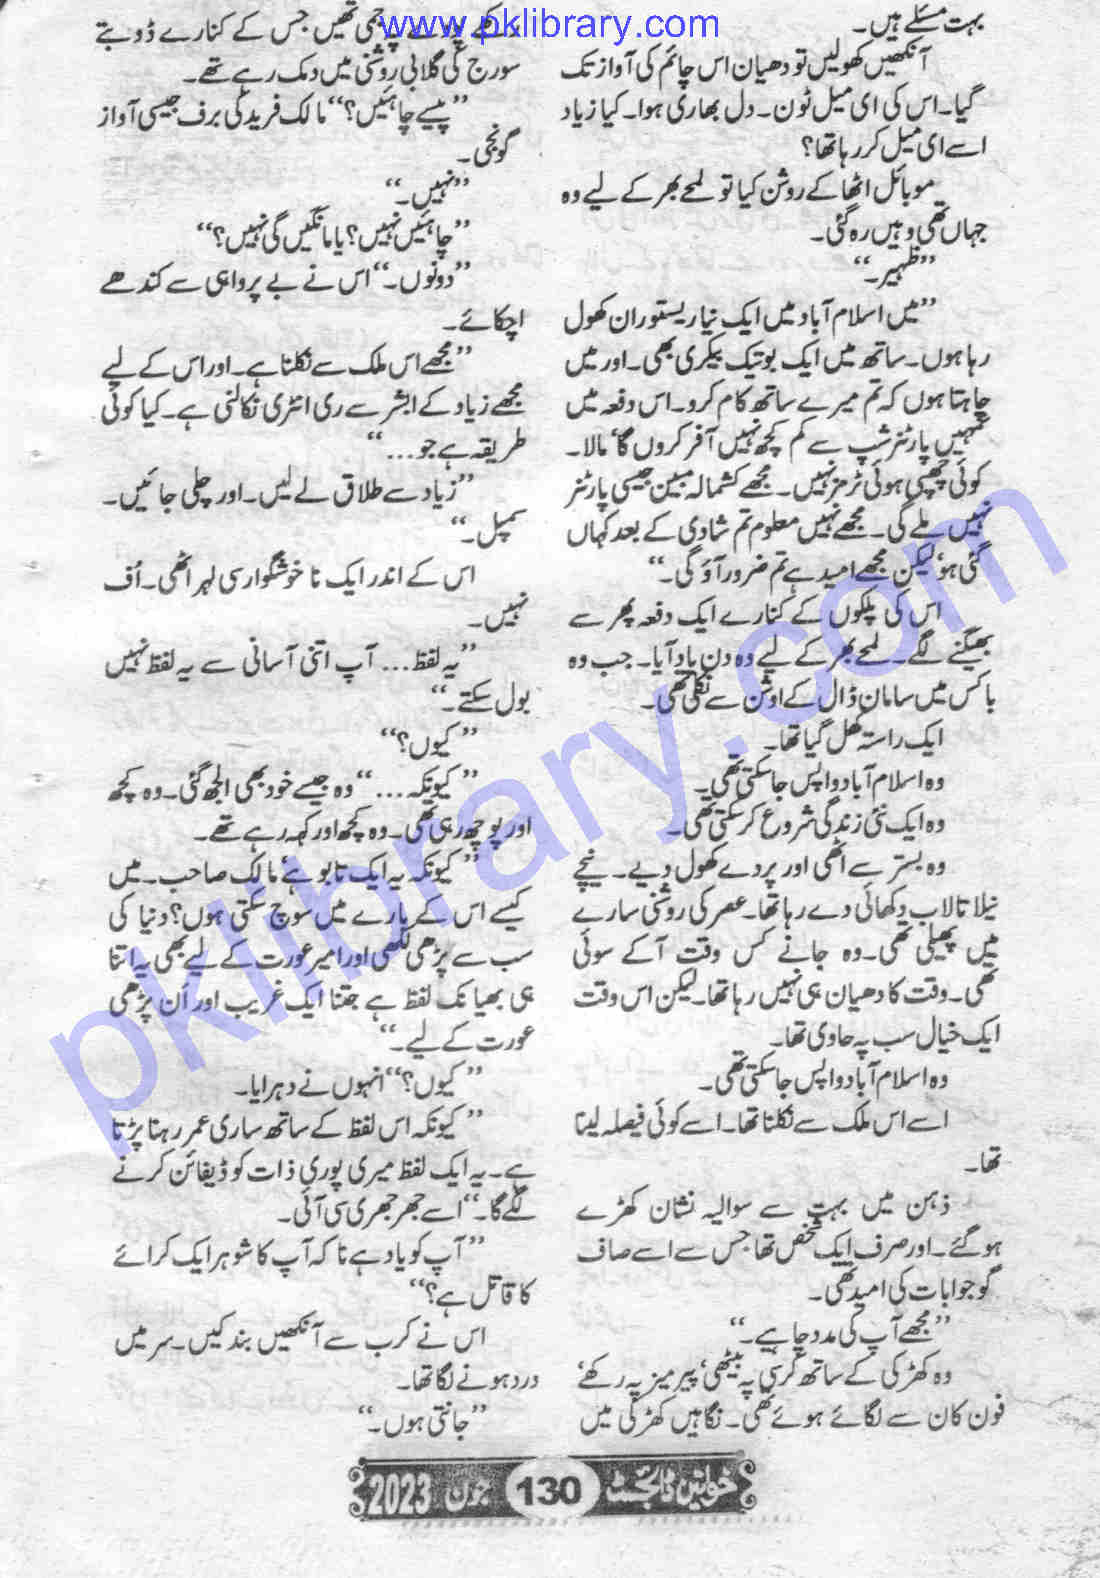 www.pklibrary.com
بہت مسئلے ہیں۔
آنکھیں کھولیں تو دھیان اس چائم کی آواز تک
گیا۔ اس کی ای میل ٹون۔ دل بھاری ہوا۔ کیا زیاد
اسے ای میل کر رہا تھا؟
موبائل اٹھا کے روشن کیا تو لمحے بھر کے لیے وہ
جہاں تھی وہیں رہ گئی۔
’’ظہیر۔‘‘
’’میں اسلام آباد میں ایک نیا ریستوران کھول
رہا ہوں۔ ساتھ میں ایک بوتیک بیکری بھی۔ اور میں
چاہتا ہوں کہ تم میرے ساتھ کام کرو۔ اس دفعہ میں
تمہیں پارٹنر شپ سے کم کچھ نہیں آفر کروں گا‘ مالا۔
کوئی چھپی ہوئی ٹرمز نہیں۔ مجھے کشمالہ مبین جیسی پارٹنر
نہیں ملے گی۔ مجھے نہیں معلوم تم شادی کے بعد کہاں
گئی ہو‘ لیکن مجھے امید ہے تم ضرور آؤ گی۔‘‘
اس کی پلکوں کے کنارے ایک دفعہ پھر سے
بھیگنے لگے۔ لمحے بھر کے لیے وہ دن یاد آیا۔ جب وہ
باکس میں سامان ڈال کے اوشن سے نکلی تھی۔
ایک راستہ کھل گیا تھا۔
وہ اسلام آباد واپس جا سکتی تھی۔
وہ ایک نئی زندگی شروع کر سکتی تھی۔
وہ بستر سے اٹھی اور پردے کھول دیے۔ نیچے
نیلا تالاب دکھائی دے رہا تھا۔ عصر کی روشنی سارے
میں پھیلی تھی۔ وہ جانے کس وقت آ کے سوئی
تھی۔ وقت کا دھیان ہی نہیں رہا تھا۔ لیکن اس وقت
ایک خیال سب پہ حاوی تھا۔
وہ اسلام آباد واپس جا سکتی تھی۔
اسے اس ملک سے نکلنا تھا۔ اسے کوئی فیصلہ لینا
تھا۔
ذہن میں بہت سے سوالیہ نشان کھڑے
ہو گئے۔ اور صرف ایک شخص تھا جس سے اسے صاف
گو جوابات کی امید تھی۔
’’مجھے آپ کی مدد چاہیے۔‘‘
وہ کھڑکی کے ساتھ کرسی پہ بیٹھی‘ پیر میز پہ رکھے‘
فون کان سے لگائے ہوئے تھی۔ نگاہیں کھڑکی میں
رکھے پودے پہ جمی تھیں جس کے کنارے ڈوبتے
سورج کی گلابی روشنی میں دمک رہے تھے۔
’’پیسے چاہئیں؟‘‘ مالک فرید کی برف جیسی آواز
گونجی۔
’’نہیں۔‘‘
’’چاہئیں نہیں؟ یا مانگیں گی نہیں؟‘‘
’’دونوں۔‘‘ اس نے بے پرواہی سے کندھے
اچکائے۔
’’مجھے اس ملک سے نکلنا ہے۔ اور اس کے لیے
مجھے زیاد کے ابشر سے ری انٹری نکالنی ہے۔ کیا کوئی
طریقہ ہے جو...‘‘
’’زیاد سے طلاق لے لیں۔ اور چلی جائیں۔
سمپل۔‘‘
اس کے اندر ایک ناخوشگوار سی لہر اٹھی۔ اُف
نہیں۔
’’یہ لفظ... آپ اتنی آسانی سے یہ لفظ نہیں
بول سکتے۔‘‘
’’کیوں؟‘‘
’’کیونکہ...‘‘ وہ جیسے خود بھی الجھ گئی۔ وہ کچھ
اور پوچھ رہی تھی۔ وہ کچھ اور کہہ رہے تھے۔
’’کیونکہ یہ ایک تابو ہے‘ مالک صاحب۔ میں
کیسے اس کے بارے میں سوچ سکتی ہوں؟ دنیا کی
سب سے پڑھی لکھی اور امیر عورت کے لیے بھی یہ اتنا
ہی بھیانک لفظ ہے جتنا ایک غریب اور اَن پڑھی
عورت کے لیے۔‘‘
’’کیوں؟‘‘ انہوں نے دہرایا۔
’’کیونکہ اس لفظ کے ساتھ ساری عمر رہنا پڑتا
ہے۔ یہ ایک لفظ میری پوری ذات کو ڈیفائن کرنے
لگے گا۔‘‘ اسے جھرجھری سی آئی۔
’’آپ کو یاد ہے نا کہ آپ کا شوہر ایک کرائے
کا قاتل ہے؟‘‘
اس نے کرب سے آنکھیں بند کیں۔ سر میں
درد ہونے لگا تھا۔
’’جانتی ہوں۔‘‘
خواتین ڈائجسٹ 130 جون 2023
pklibrary.com